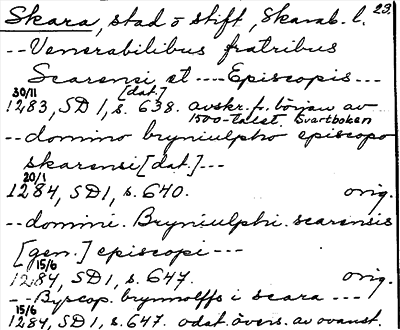 Skara, stad o stift, Skarab. l. 23.
--Venerabilibus fratribus
Scarensi et ---- Episcopis ---
[dat.]
30/11
1283, SD 1, s. 638. avskr. fr. början av
1500-talet. Svartboken
--domino bryniulpho episcopo
skarensi [dat.] ---
20/1
1284, SD 1, s. 640. orig.
--domini. Bryniulphi. scarensis
[gen.] episcopi ---
15/6
1284, SD 1, s. 647. orig.
--Byscop. brynnolffs i scara ---
15/6
1284, SD 1, s. 647. odat. övers. av ovanst.